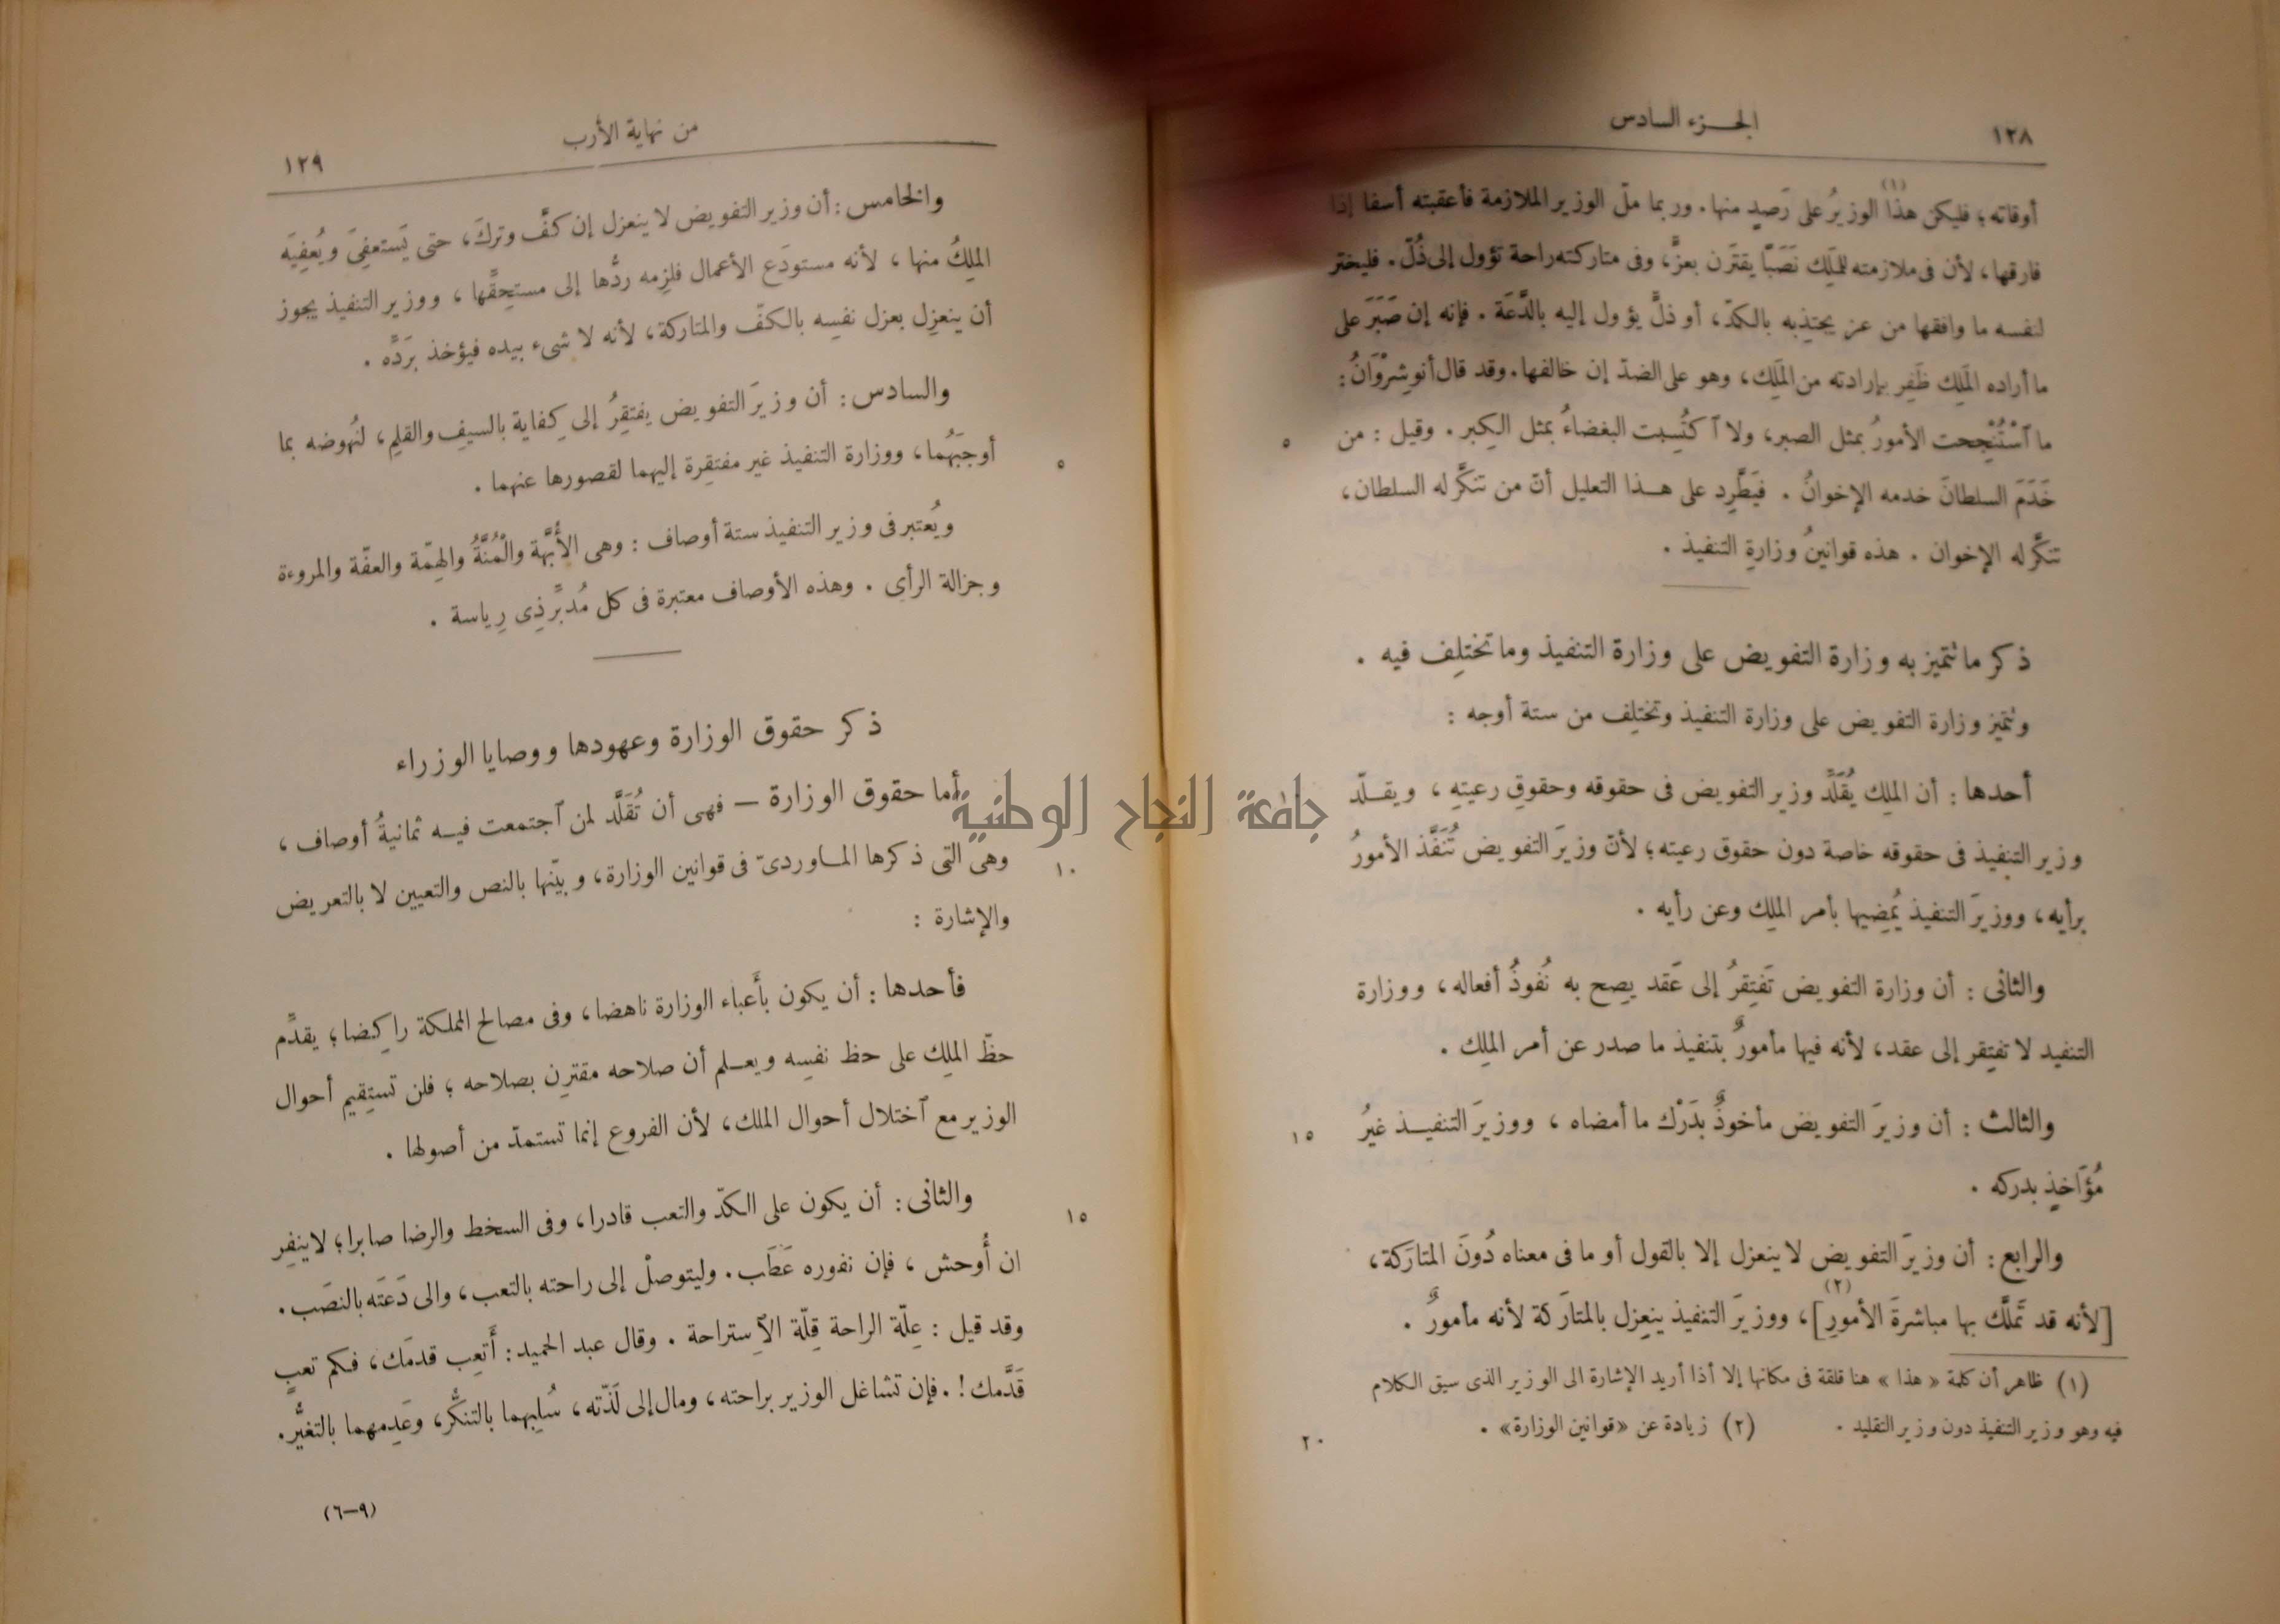 ١٢٨
الجزء السادس
أوقاته؛ فليكن هذا (١) الوزيرُ على رَصيدٍ منها. وربما ملّ الوزير الملازمة فأعقبته أسفا إذا
فارقها، لأن فى ملازمته للملِك نَصَبًا يقترن بعزٍّ، وفى متاركته راحة تؤول إلى ذُلّ. فليختر
لنفسه ما وافقها من عز يجتذبه بالكدّ، أو ذلٍّ يؤول إليه بالدَّعَة. فإنه إن صَبَرَ على
ما أراده الملِك ظَفِر بإرادته من الملِك، وهو على الضدّ إن خالفها. وقد قال أنوشِرْوَانُ:
ما ٱسْتُنْجِحت الأمورُ بمثل الصبر، ولا ٱكتُسِبت البغضاءُ بمثل الكِبر. وقيل: من
٥
خَدَمَ السلطانَ خدمه الإخوانُ. فيَطَّرِد على هذا التعليل أنّ من تنكَّر له السلطان،
تنكَّر له الإخوان. هذه قوانينُ وزارةِ التنفيذ.
ذكر ما تتميز به وزارة التفويض على وزارة التنفيذ وما تختلِف فيه.
وتتميز وزارة التفويض على وزارة التنفيذ وتختلِف من ستة أوجه:
أحدها: أن الملِك يُقَلِّد وزير التفويض فى حقوقه وحقوقِ رعيتهِ، ويقلّد
وزير التنفيذ فى حقوقه خاصة دون حقوق رعيته؛ لأنّ وزيرَ التفويض تُنَفَّذ الأمورُ
برأيه، ووزيرَ التنفيذ يُمضِيها بأمر الملِك وعن رأيه.
والثانى: أن وزارة التفويض تَفتِقرُ إلى عَقد يصِح به نُفوذُ أفعاله، ووزارة
التنفيد لا تفتِقر إلى عقد، لأنه فيها مأمورٌ بتنفيذ ما صدر عن أمر الملِك.
والثالث: أن وزيرَ التفويض مأخوذٌ بدَرْك ما أمضاه، ووزيرَ التنفيذ غيرُ
١٥
مُؤاخَذٍ بدركه.
والرابع: أن وزيرَ التفويض لا ينعزل إلا بالقول أو ما فى معناه دُونَ المتارَكة،
[لأنه قد تَملَّك بها مباشرةَ الأمورِ] (٢)، ووزيرَ التنفيذ ينعِزل بالمتارَكة لأنه مأمورٌ.
(١) ظاهر أن كلمة «هذا» هنا قلقة فى مكانها إلا أذا أريد الإشارة الى الوزير الذى سيق الكلام
فيه وهو وزير التنفيذ دون وزير التقليد. (٢) زيادة عن «قوانين الوزارة».
٢٠
من نهاية الأرب
١٢٩
والخامس: أن وزير التفويض لا ينعزل إن كفَّ وتركَ، حتى يَستعفِىَ ويُعفِيَه
الملِكُ منها، لأنه مستودَع الأعمال فلزِمه ردُّها إلى مستحِقِّها، ووزير التنفيذ يجوز
أن ينعزِل بعزل نفسِه بالكفّ والمتاركة، لأنه لا شىء بيده فيؤخذ برَدّه.
والسادس: أن وزيرَ التفويض يفتقِرُ إلى كِفاية بالسيفِ والقلمِ، لنُهوضه بما
أوجبَهُما، ووزارة التنفيذ غير مفتقِرة إليهما لقصورها عنهما.
٥
ويُعتبر فى وزير التنفيذ ستة أوصاف: وهى الأُبَّهة والْمُنَّةُ والهِمّة والعفّة والمروءة
وجزالة الرأى. وهذه الأوصاف معتبرة فى كل مُدبِّر ذِى رِياسة.
ذكر حقوق الوزارة وعهودها ووصايا الوزراء
أما حقوق الوزارة — فهى أن تُقَلَّد لمن ٱجتمعت فيه ثمانيةُ أوصاف،
وهى التى ذكرها الماوردىّ فى قوانين الوزارة، وبيّنها بالنص والتعيين لا بالتعريض
١٠
والإشارة:
فأحدها: أن يكون بأَعباء الوزارة ناهضا، وفى مصالح المملكة راكِضا؛ يقدِّم
حظّ الملِك على حظ نفسِه ويعلم أن صلاحه مقترِن بصلاحه؛ فلن تستِقيم أحوال
الوزير مع ٱختلال أحوال الملك، لأن الفروع إنما تستمدّ من أصولها.
والثانى: أن يكون على الكدّ والتعب قادرا، وفى السخط والرضا صابرا؛ لا ينفِر
١٥
ان أُوحش، فإن نفوره عَطَب. وليتوصلْ إلى راحته بالتعب، والى دَعَته بالنصَب.
وقد قيل: عِلّة الراحة قِلّة الٱستراحة. وقال عبد الحميد: أَتعِب قدمَك، فكم تعبٍ
قَدَّمك!. فإن تشاغل الوزير براحته، ومال إلى لَذّته، سُلِبهما بالتنكُّر، وعَدِمهما بالتغيُّر.
(٩-٦)
جامعة النجاح الوطنية